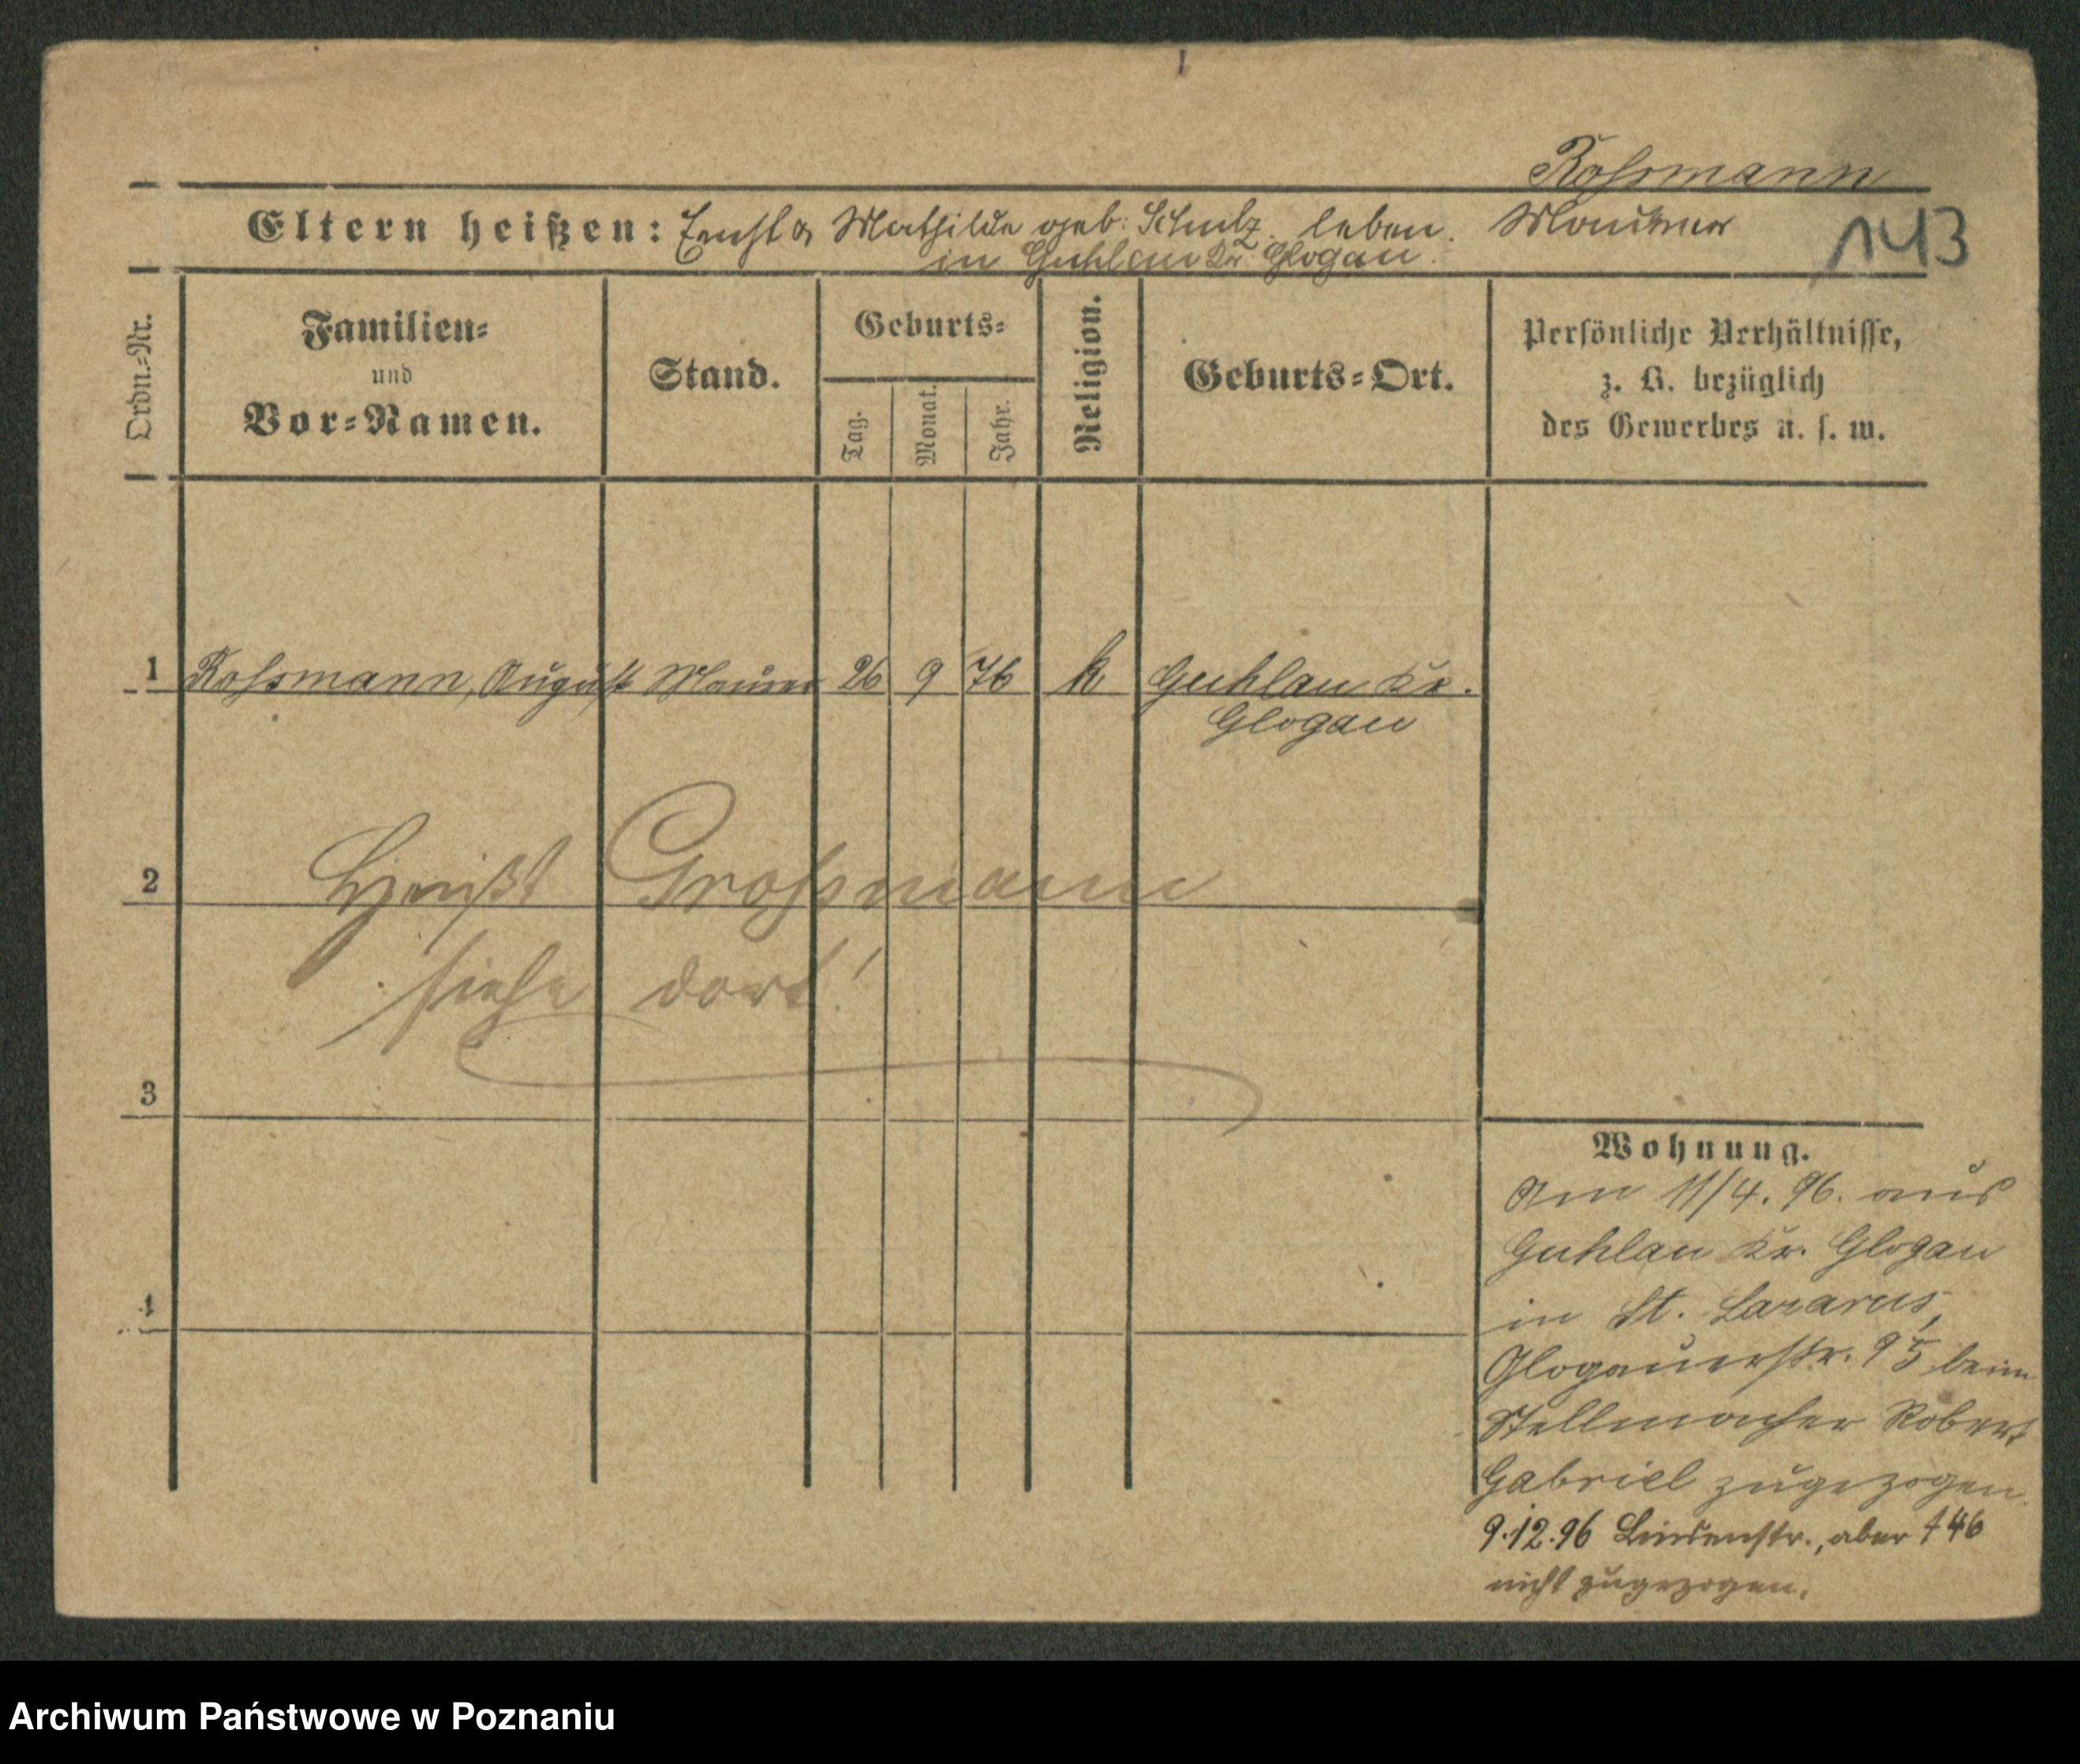 Roßmann
Eltern heißen: Ernst & Mathilde geb: Schulz. leben.
in Guhlau Kr. Glogau.
143
Ordn.-Nr.
Familien-
und
Vor-Namen.
Stand.
Geburts-
Tag.
Monat.
Jahr.
Religion.
Geburts-Ort.
Persönliche Verhältnisse,
z. B. bezüglich
des Gewerbes u. s. w.
1 Roßmann, August Maurer 26 9 76 k Guhlau Kr.
Glogau
2 Heißt Großmann
siehe dort!
3
4
Wohnung.
Am 11/4. 96. aus
Guhlau Kr. Glogau
in St. Lazarus,
Glogauerstr. 95 beim
Stellmacher Robert
Gabriel zugezogen.
9.12.96 Lindenstr., aber 46
nicht zugezogen.
Archiwum Państwowe w Poznaniu